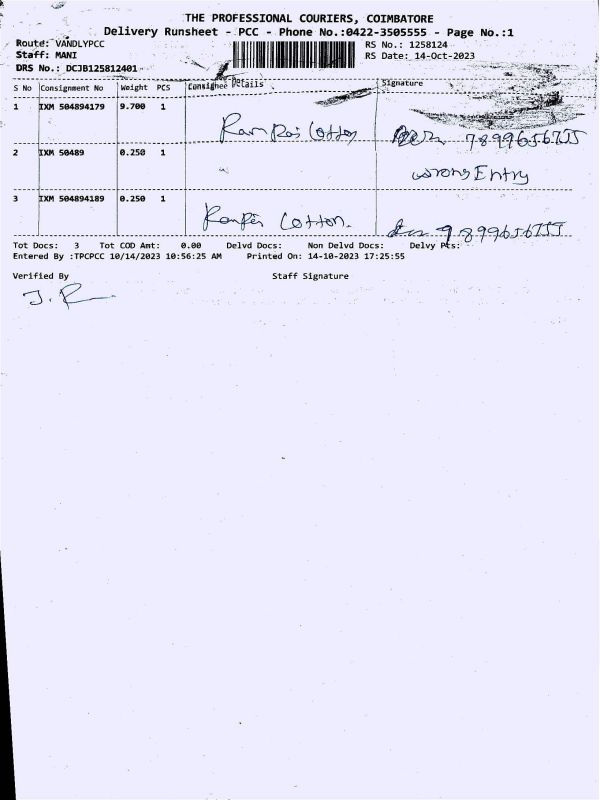 THE PROFESSIONAL COURIERS, COIMBATORE
Delivery Runsheet - PCC - Phone No.:0422-3505555 - Page No.:1
Route: VANDLYPCC
RS No.: 1258124
Staff: MANI
RS Date: 14-Oct-2023
DRS No.: DCJB125812401
S No Consignment No Weight PCS Consignee Details Signature
1 IXM 504894179 9.700 1
Cotton
2 IXM 50489 0.250 1
wrong Entry
3 IXM 504894189 0.250 1
Cotton.
Tot Docs: 3 Tot COD Amt: 0.00 Delvd Docs: Non Delvd Docs: Delvy Pts:
Entered By :TPCPCC 10/14/2023 10:56:25 AM Printed On: 14-10-2023 17:25:55
Verified By Staff Signature
J.R